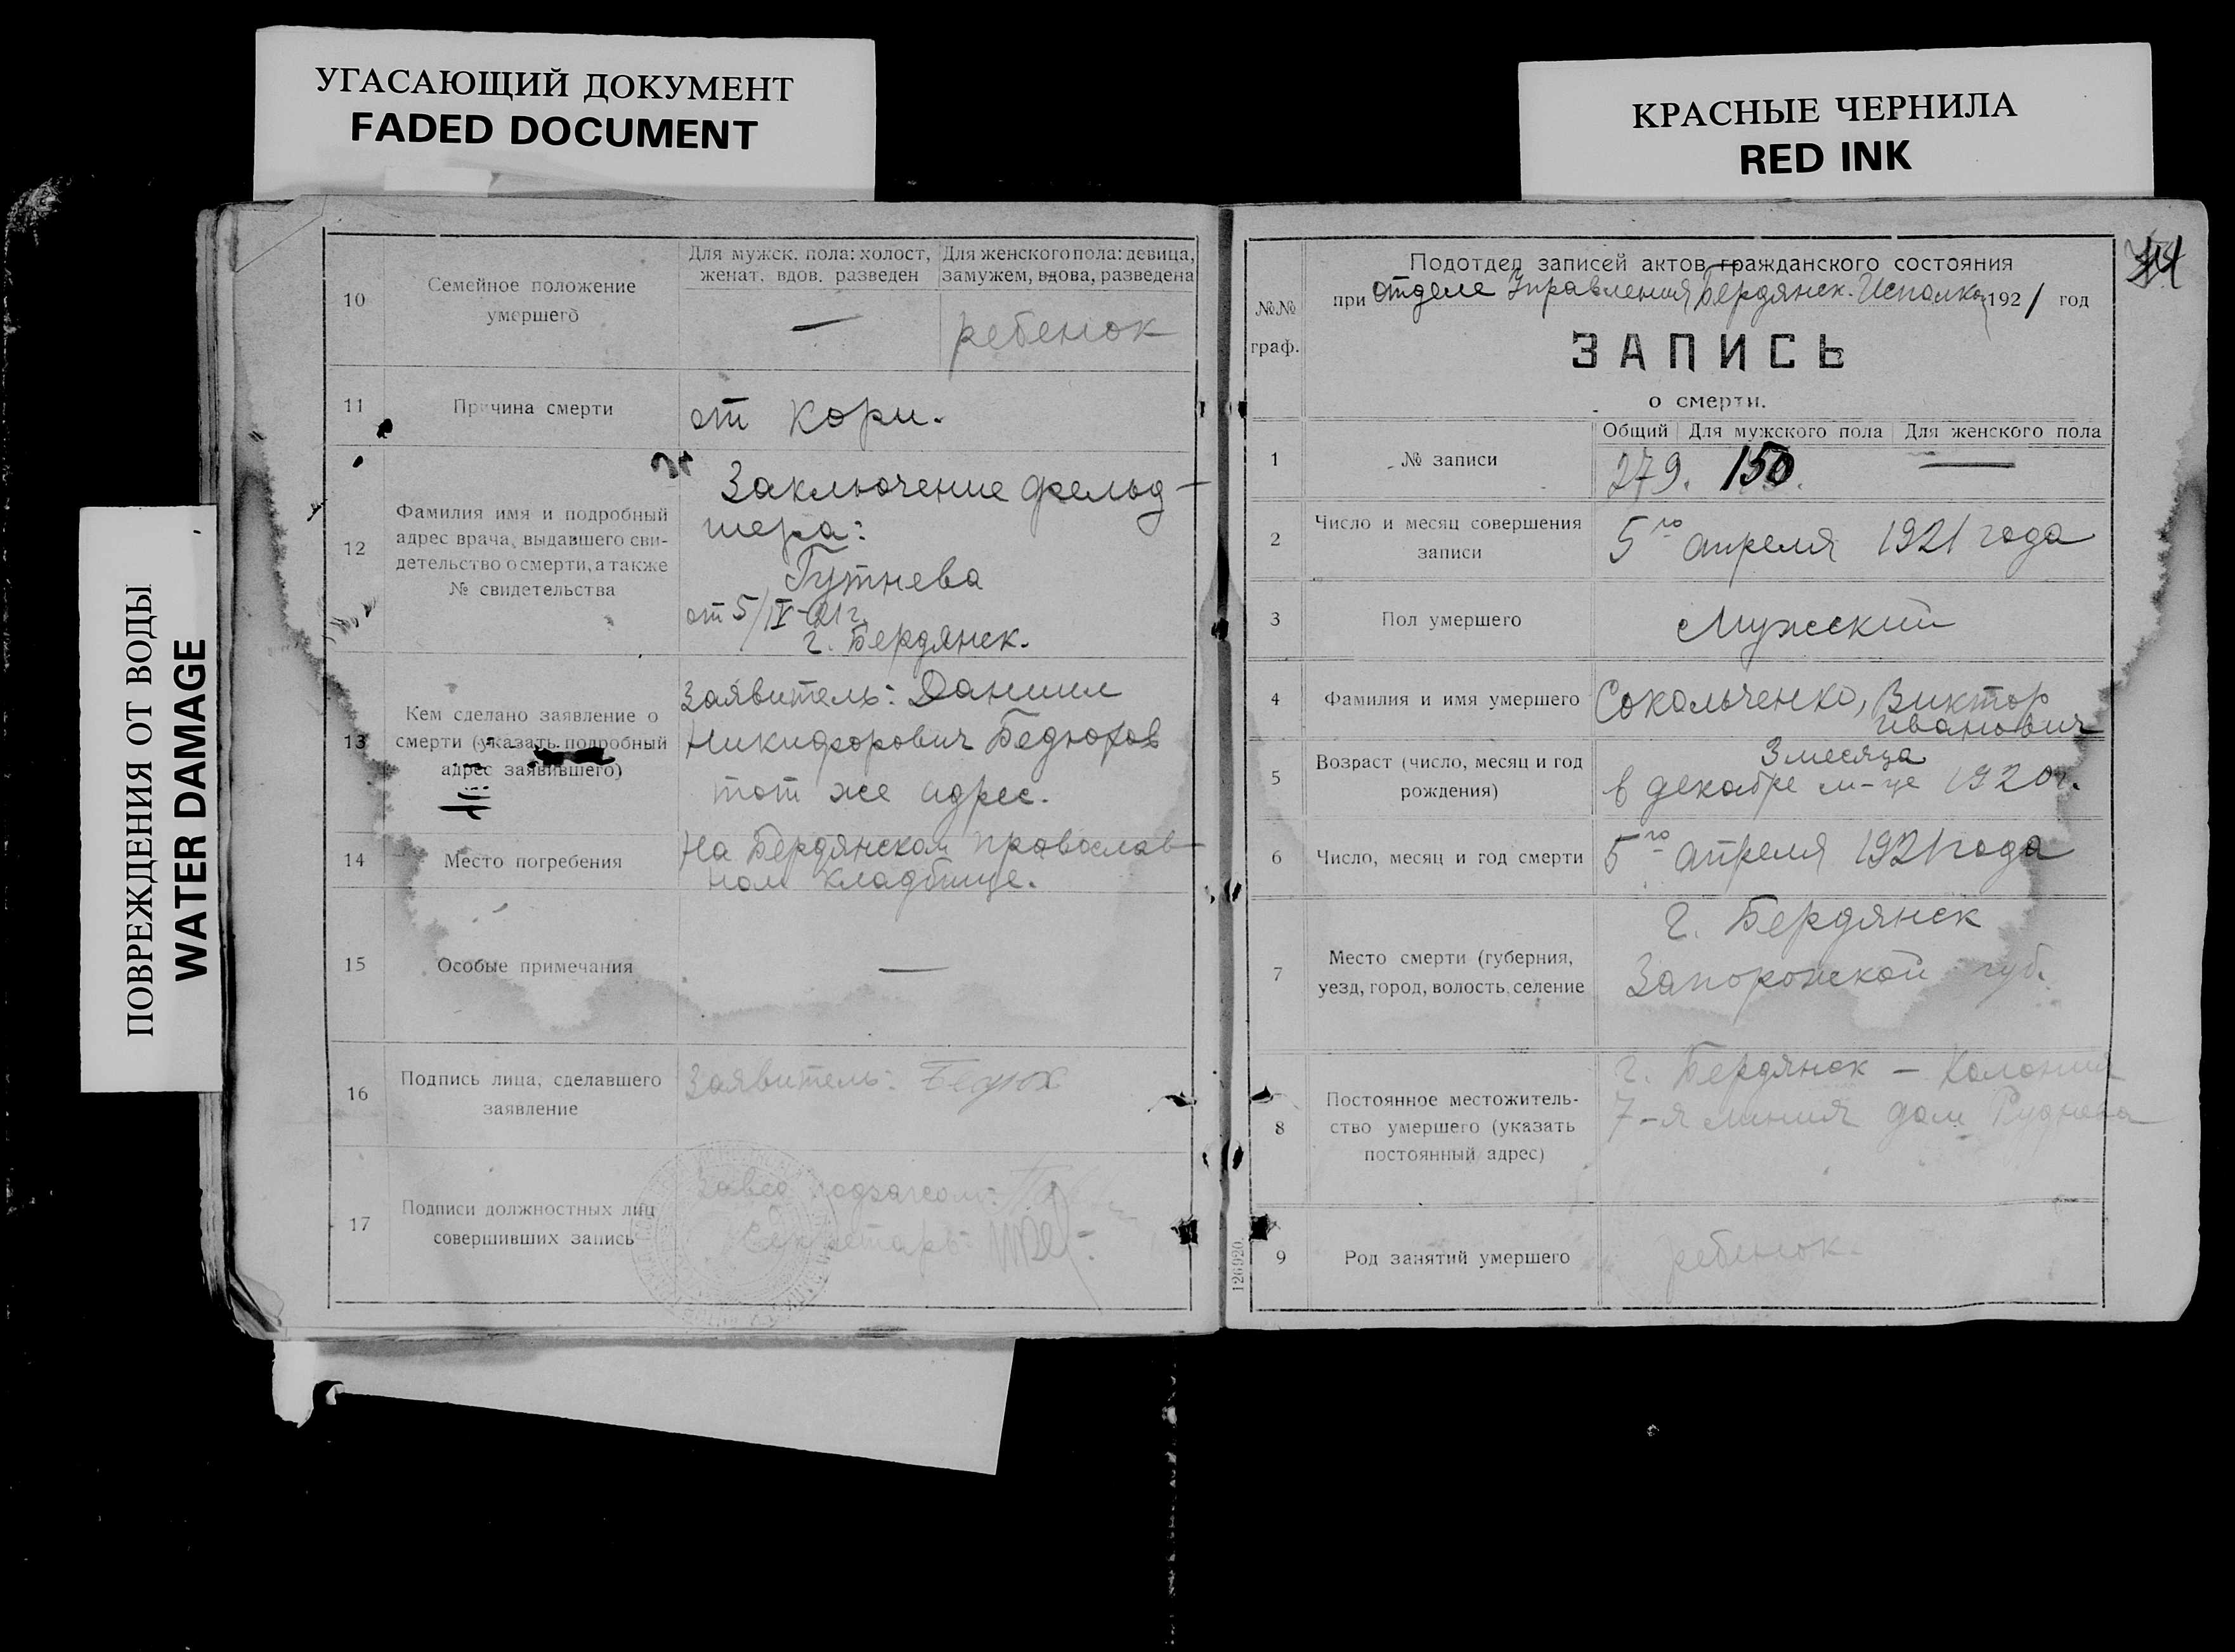 УГАСАЮЩИЙ ДОКУМЕНТ
FADED DOCUMENT
КРАСНЫЕ ЧЕРНИЛА
RED INK
ПОВРЕЖДЕНИЯ ОТ ВОДЫ
WATER DAMAGE
10
Семейное положение
умершего
Для мужск. пола: холост,
женат, вдов. разведен
Для женского пола: девица,
замужем, вдова, разведена
—
ребенок
11
Причина смерти
от кори.
12
Фамилия имя и подробный
адрес врача, выдавшего сви-
детельство о смерти, а также
№ свидетельства
Заключение фельд-
шера:
Гутнева
от 5/IV-21 г.
г. Бердянск.
13
Кем сделано заявление о
смерти (указать подробный
адрес заявившего)
Заявитель: Даниил
Никифорович Бедюхов
тот же адрес.
14
Место погребения
На Бердянском православ-
ном кладбище.
15
Особые примечания
—
16
Подпись лица, сделавшего
заявление
Заявитель: Бедюх
17
Подписи должностных лиц
совершивших запись
Завед подзагсом:
Секретарь:
№№
граф.
Подотдел записей актов гражданского состояния
при отделе Управления Бердянск. Исполк. 1921 год
ЗАПИСЬ
о смерти.
1
№ записи
Общий
Для мужского пола
Для женского пола
279.
150.
—
2
Число и месяц совершения
записи
5го апреля 1921 года
3
Пол умершего
Мужский
4
Фамилия и имя умершего
Сокольченко, Виктор
Иванович
5
Возраст (число, месяц и год
рождения)
3 месяца
в декабре м-це 1920 г.
6
Число, месяц и год смерти
5го апреля 1921 года
7
Место смерти (губерния,
уезд, город, волость, селение
г. Бердянск
Запорожской губ.
8
Постоянное местожитель-
ство умершего (указать
постоянный адрес)
г. Бердянск – Колония
7-я линия дом Руднева
9
Род занятий умершего
ребенок.
126920.